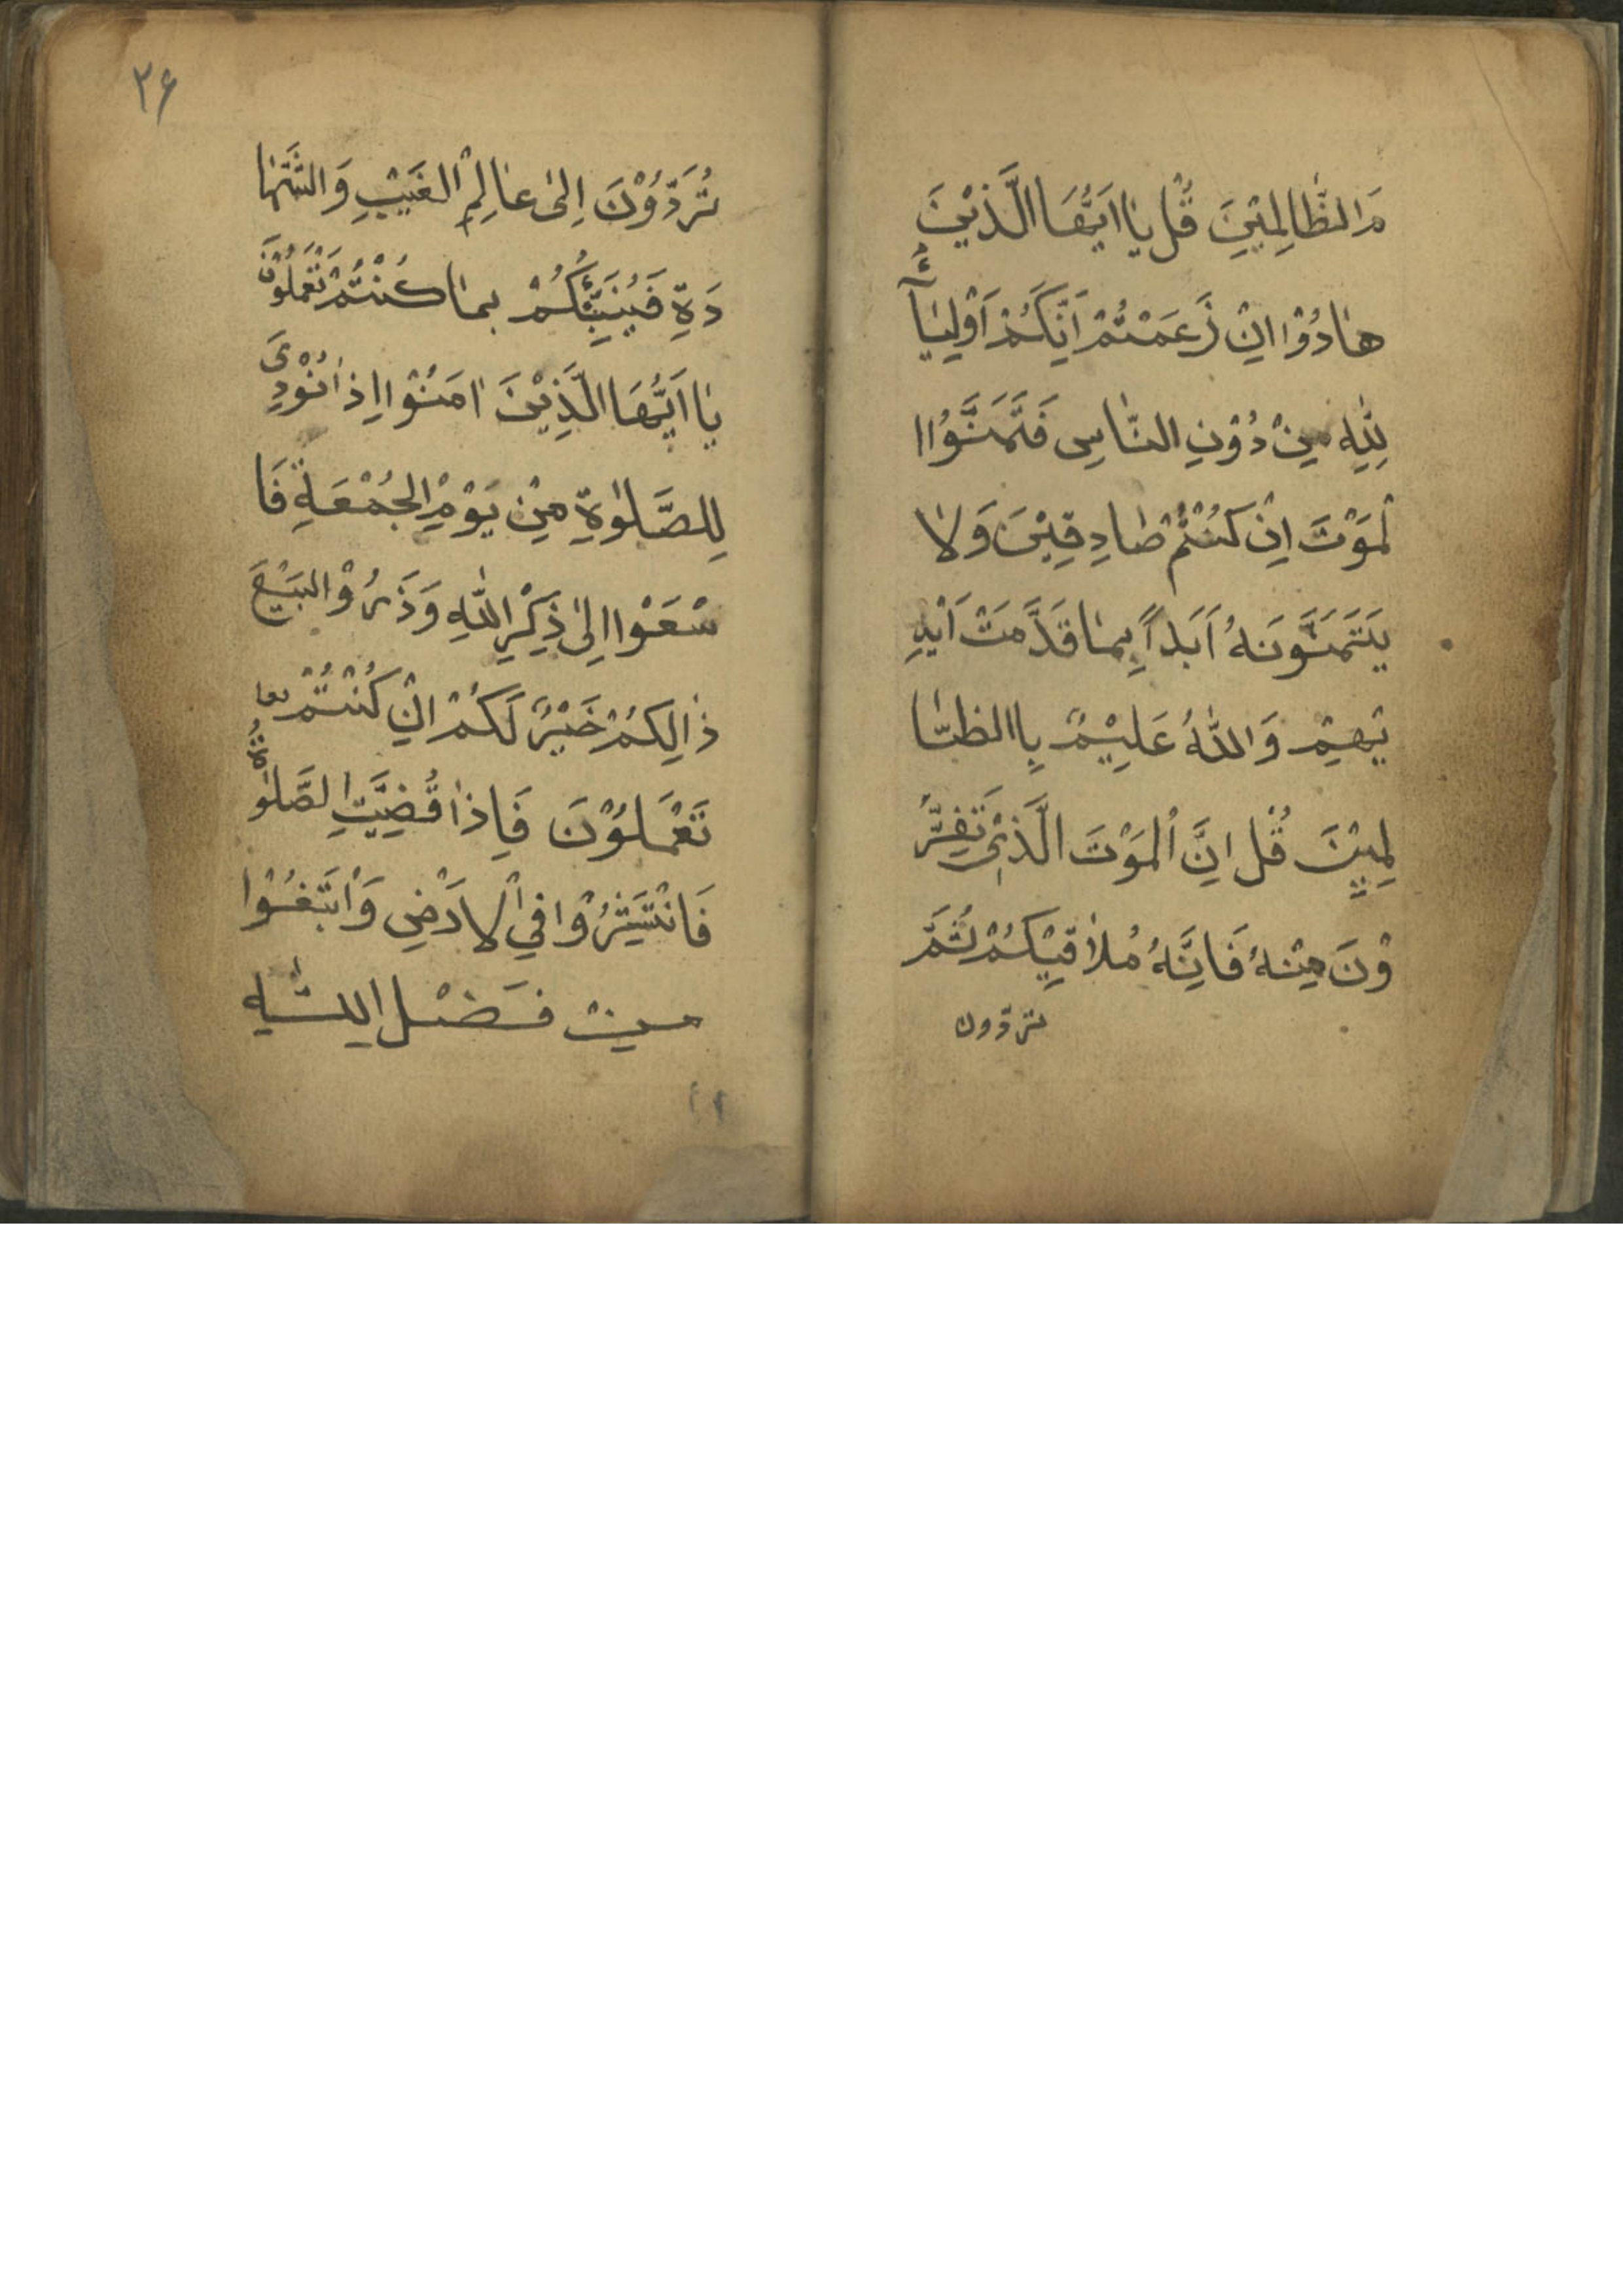 مَ الظَّالِمِيْنَ قُلْ يَا اَيُّهَا الَّذِيْنَ
هَادُوْا اِنْ زَعَمْتُمْ اَنَّكُمْ اَوْلِيَآءُ
لِلّٰهِ مِنْ دُوْنِ النَّاسِ فَتَمَنَّوُا ا
لْمَوْتَ اِنْ كُنْتُمْ صَادِقِيْنَ وَلَا
يَتَمَنَّوْنَهُ اَبَداً بِمَا قَدَّمَتْ اَيْدِ
يْهِمْ وَاللّٰهُ عَلِيْمٌ بِاالظَّا
لِمِيْنَ قُلْ اِنَّ الْمَوْتَ الَّذِيْ تَفِرُّ
وْنَ مِنْهُ فَاِنَّهُ مُلَاقِيْكُمْ ثُمَّ
تردّون
۲۶
تُرَدُّوْنَ اِلىٰ عَالِمِ الْغَيْبِ وَالشَّهَا
دَةِ فَيُنَبِّئُكُمْ بِمَا كُنْتُمْ تَعْمَلُوْنَ
يَا اَيُّهَا الَّذِيْنَ اٰمَنُوْا اِذَا نُوْدِىَ
لِلصَّلٰوةِ مِنْ يَوْمِ الْجُمُعَةِ فَا
سْعَوْا اِلىٰ ذِكْرِ اللّٰهِ وَذَرُوْ الْبَيْعَ
ذٰالِكُمْ خَيْرٌ لَكُمْ اِنْ كُنْتُمْ
تَعْمَلُوْنَ فَاِذَا قُضِيَتِ الصَّلٰوةُ
فَانْتَشِرُوْا فِي الْاَرْضِ وَابْتَغُوْا
مِنْ فَضْلِ اللّٰهِ